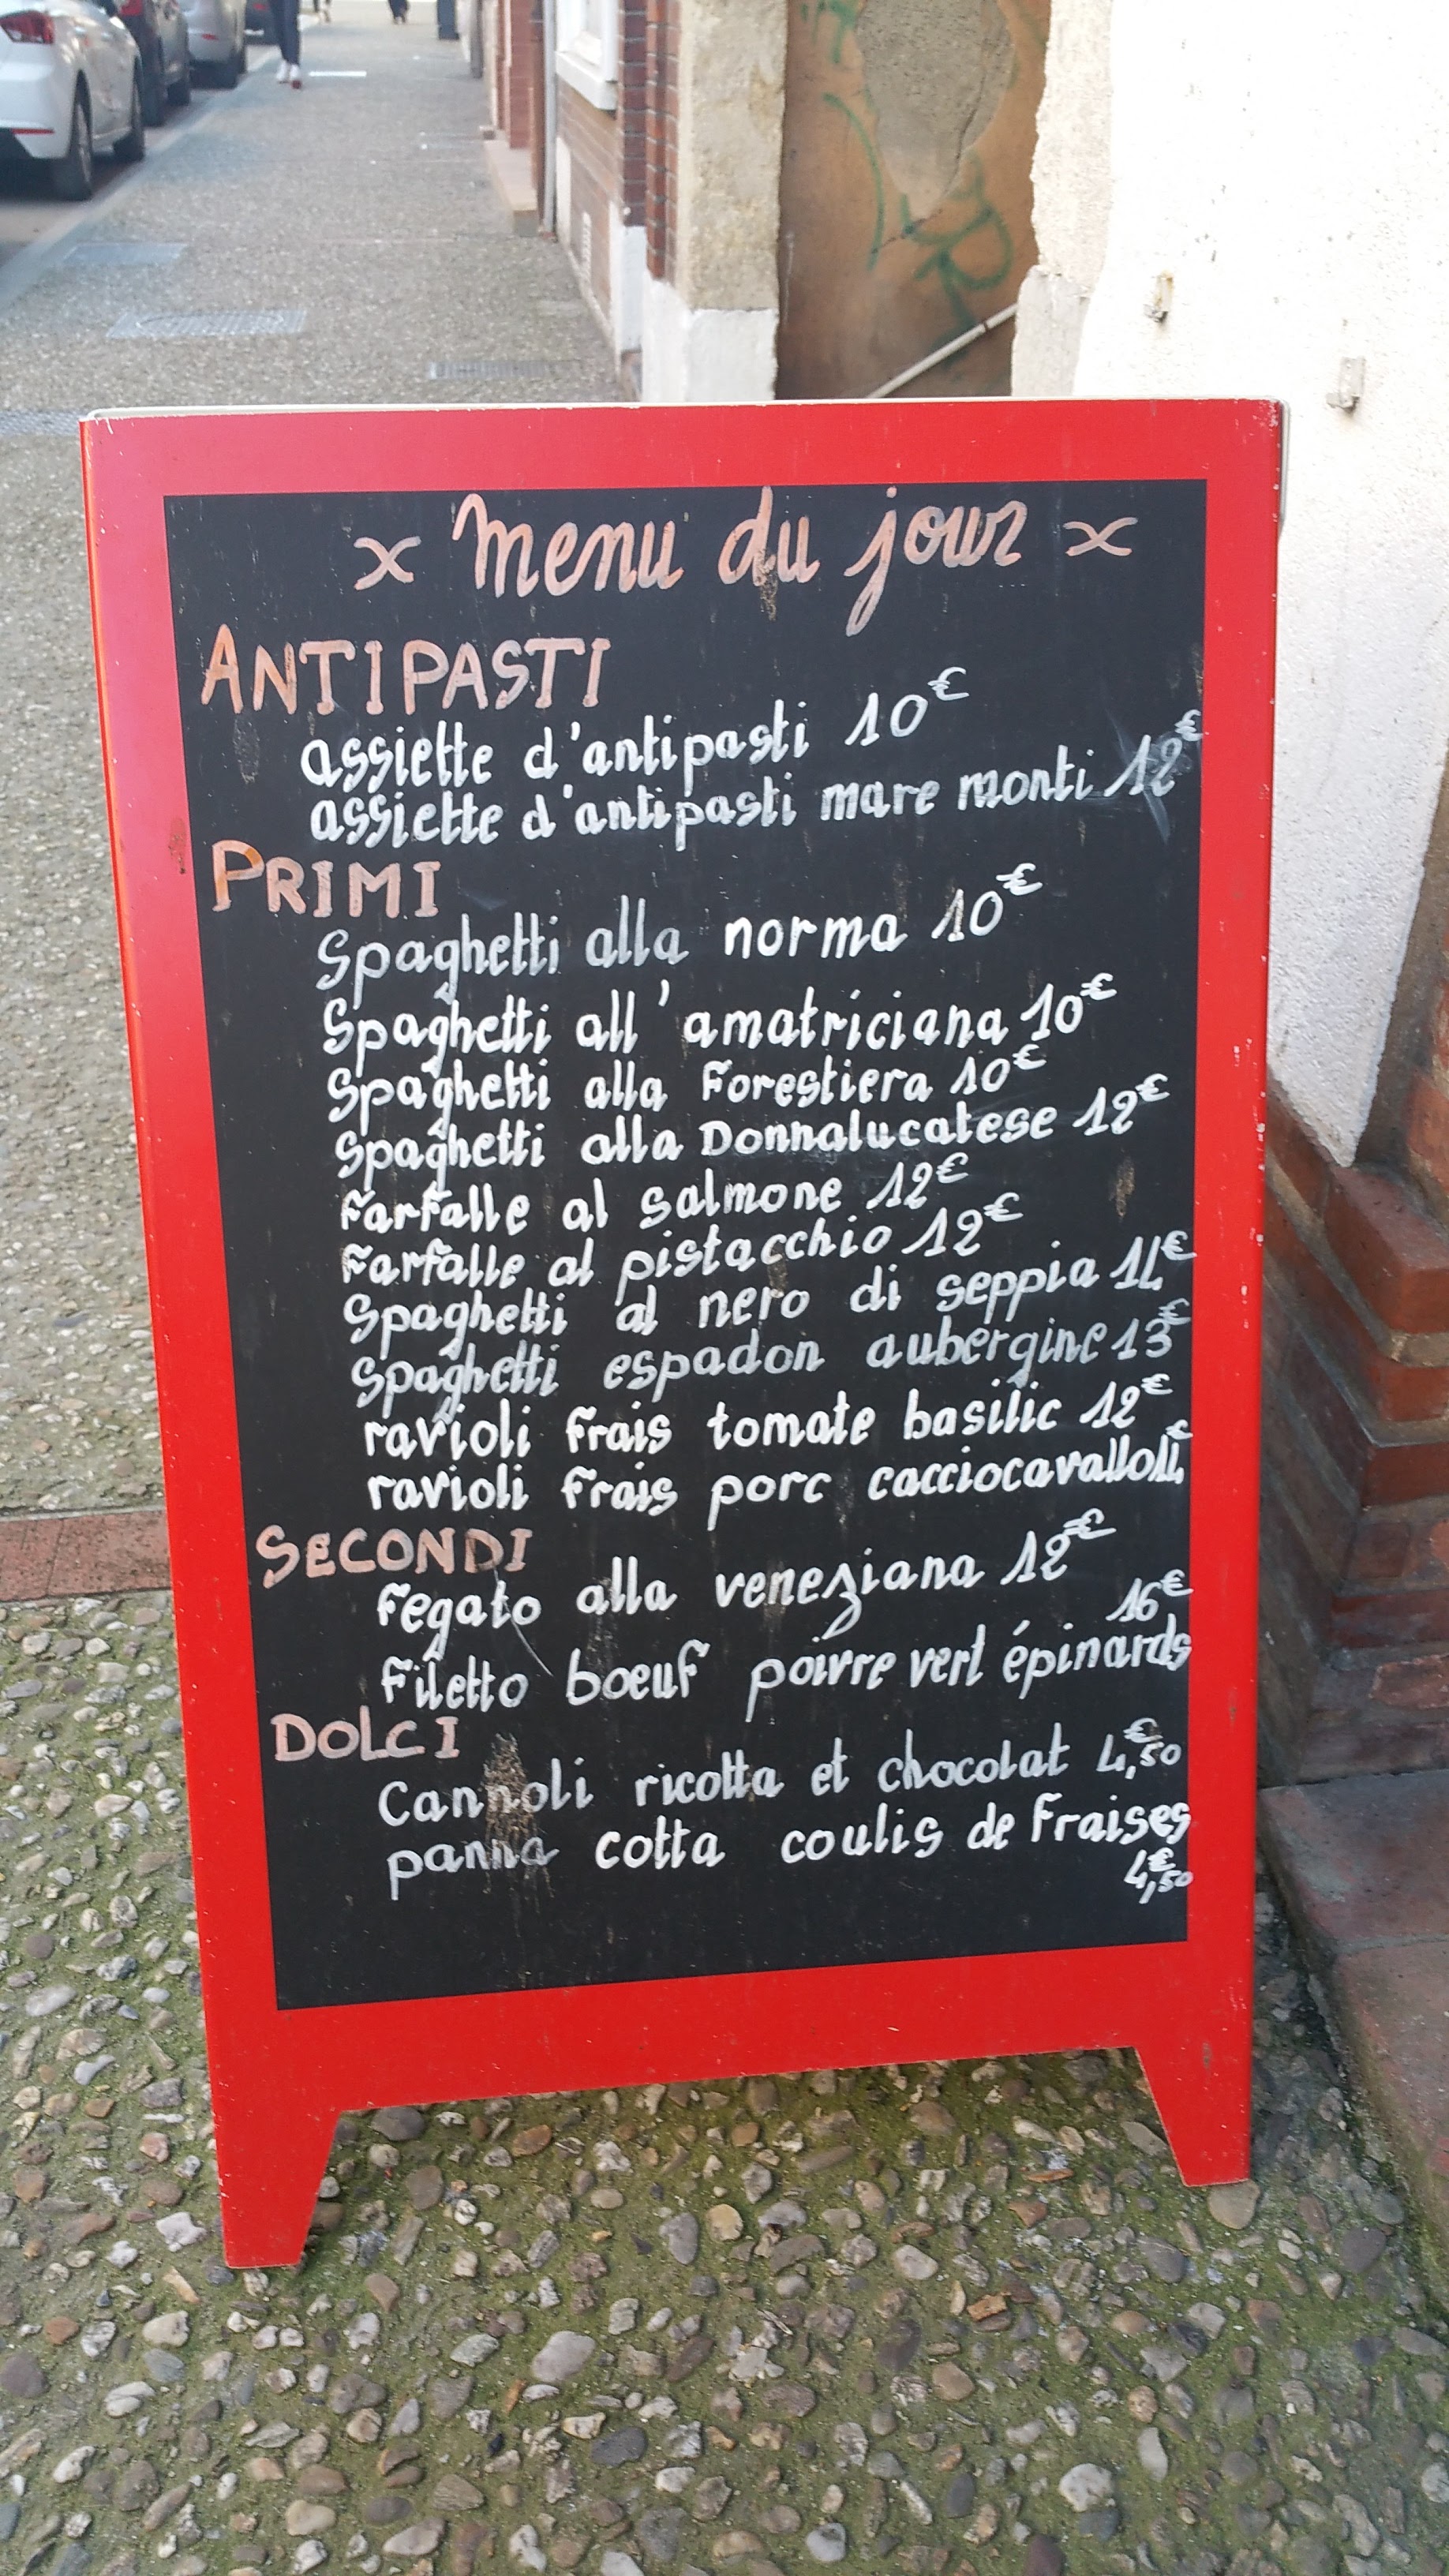 x Menu du jour x
ANTIPASTI
assiette d'antipasti 10€
assiette d'antipasti mare monti 12€
PRIMI
Spaghetti alla norma 10€
Spaghetti all'amatriciana 10€
Spaghetti alla Forestiera 10€
Spaghetti alla Donnalucatese 12€
Farfalle al salmone 12€
Farfalle al pistacchio 12€
Spaghetti al nero di seppia 14€
Spaghetti espadon aubergine 13€
ravioli frais tomate basilic 12€
ravioli frais porc cacciocavallo 14€
SECONDI
Fegato alla veneziana 12€
16€
Filetto boeuf poivre vert épinards
DOLCI
Cannoli ricotta et chocolat 4,€50
panna cotta coulis de Fraises
4,€50